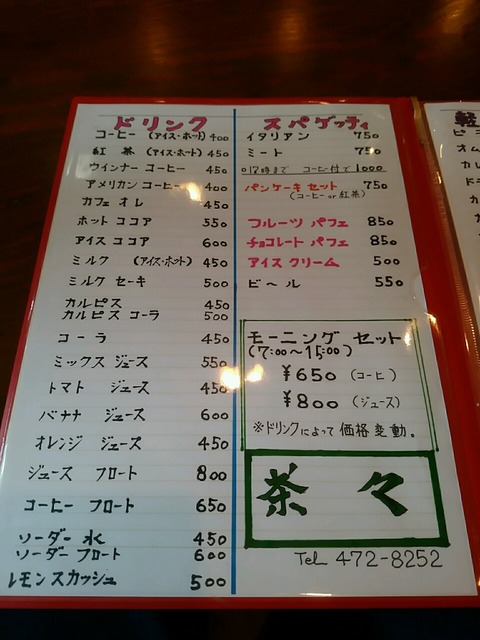 ドリンク
コーヒー (アイス・ホット) 400
紅茶 (アイス・ホット) 450
ウインナーコーヒー 450
アメリカンコーヒー 400
カフェオレ 450
ホットココア 550
アイスココア 600
ミルク (アイス・ホット) 450
ミルクセーキ 500
カルピス 450
カルピスコーラ 500
コーラ 450
ミックスジュース 550
トマトジュース 450
バナナジュース 600
オレンジジュース 450
ジュースフロート 800
コーヒーフロート 650
ソーダー水 450
ソーダーフロート 600
レモンスカッシュ 500
スパゲッティ
イタリアン 750
ミート 750
まで コーヒ付で 1000
パンケーキセット 750
(コーヒ or 紅茶)
フルーツパフェ 850
チョコレートパフェ 850
アイスクリーム 500
ビール 550
モーニングセット
(7:00〜15:00)
¥650 (コーヒ)
¥800 (ジュース)
※ドリンクによって価格変動。
茶々
Tel 472-8252
軽